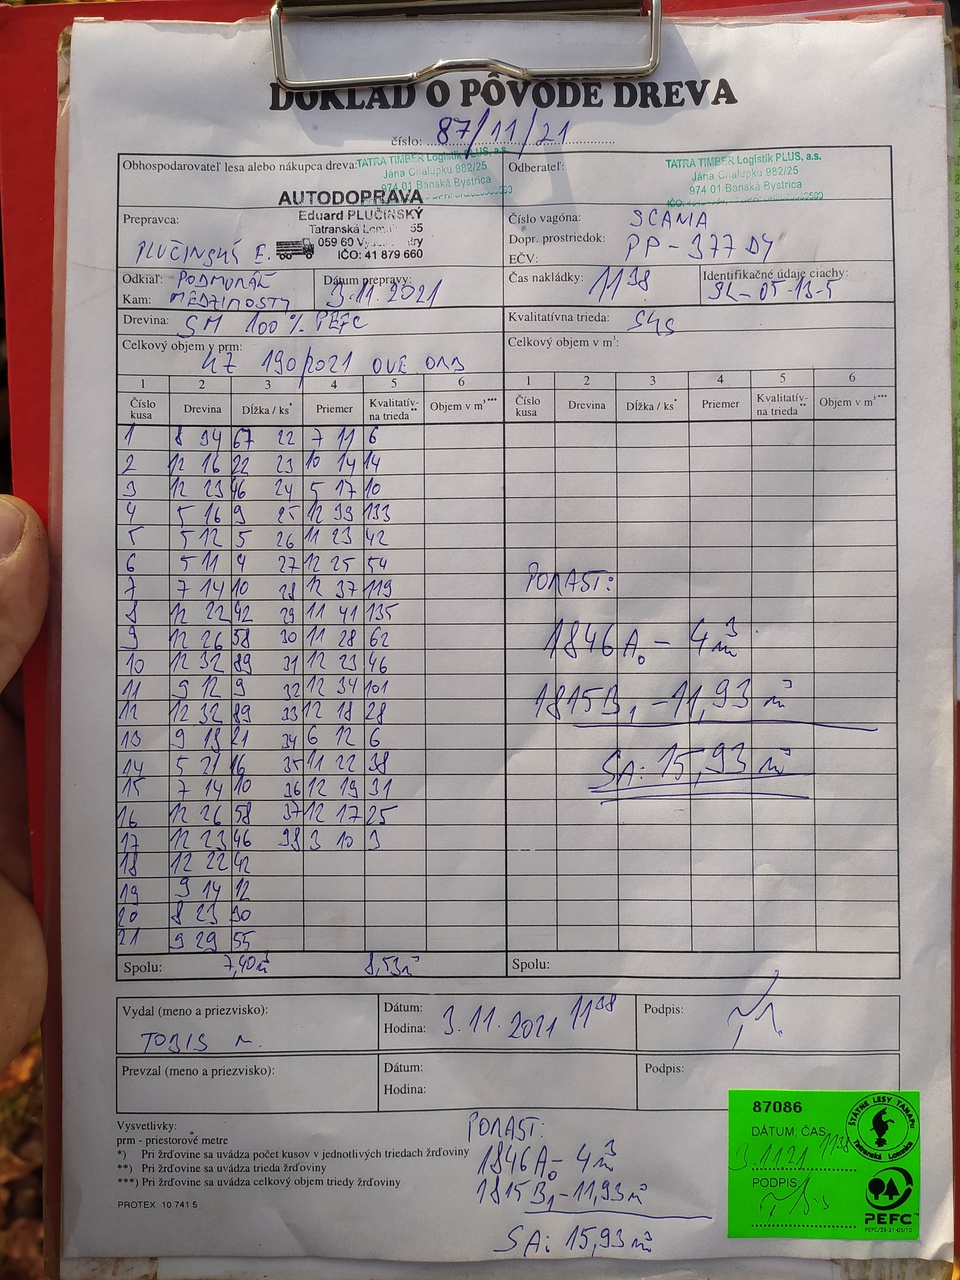 DOKLAD O PÔVODE DREVA
číslo: 87/11/21
Obhospodarovateľ lesa alebo nákupca dreva:
TATRA TIMBER Logistik PLUS, a.s.
Jána Chalupku 982/25
974 01 Banská Bystrica
Odberateľ:
TATRA TIMBER Logistik PLUS, a.s.
Jána Chalupku 982/25
974 01 Banská Bystrica
Prepravca:
AUTODOPRAVA
Eduard PLUČINSKÝ
Tatranská 55
059 60
IČO: 41 879 660
PLUČINSKÝ E.
Číslo vagóna: SCANIA
Dopr. prostriedok:
EČV: PP-377DY
Odkiaľ: PODMURÁŇ
Kam: MEDZIMOSTY
Dátum prepravy:
3.11.2021
Čas nakládky: 11 38
Identifikačné údaje ciachy:
SL-05-13-5
Drevina: SM 100% PEFC
Kvalitatívna trieda:
Celkový objem v prm:
KZ 190/2021
Celkový objem v m³:
1 2 3 4 5 6 1 2 3 4 5 6
Číslo kusa Drevina Dĺžka / ks* Priemer Kvalitatív-na trieda** Objem v m³*** Číslo kusa Drevina Dĺžka / ks* Priemer Kvalitatív-na trieda** Objem v m³***
1 8 34 67 22 7 11 6
2 12 16 22 23 10 14 14
3 12 23 46 24 5 17 10
4 5 16 9 25 12 39 133
5 5 12 5 26 11 23 42
6 5 11 4 27 12 25 54
7 7 14 10 28 12 37 119
8 12 22 42 29 11 41 135
9 12 26 58 30 11 28 62
10 12 32 89 31 12 23 46
11 9 12 9 32 12 34 101
12 12 32 89 33 12 18 28
13 9 18 21 34 6 12 6
14 5 21 16 35 11 22 38
15 7 14 10 36 12 19 31
16 12 26 58 37 12 17 25
17 12 23 46 38 3 10 3
18 12 22 42
19 9 14 12
20 8 23 30
21 9 29 55
PORAST:
1846A₀ - 4 m³
1815B₁ - 11,93 m³
SA: 15,93 m³
Spolu: 7,40 m³ 8,53 m³ Spolu:
Vydal (meno a priezvisko):
TOBIS M.
Dátum:
Hodina: 3.11.2021 11 38
Podpis:
Prevzal (meno a priezvisko):
Dátum:
Hodina:
Podpis:
Vysvetlivky:
prm - priestorové metre
*) Pri žrďovine sa uvádza počet kusov v jednotlivých triedach žrďoviny
**) Pri žrďovine sa uvádza trieda žrďoviny
***) Pri žrďovine sa uvádza celkový objem triedy žrďoviny
PROTEX 10 741 5
PORAST:
1846A₀ - 4 m³
1815B₁ - 11,93 m³
SA: 15,93 m³
87086
DÁTUM, ČAS
3.11.21 11 38
PODPIS
ŠTÁTNE LESY TANAPu
Tatranská Lomnica
PEFC